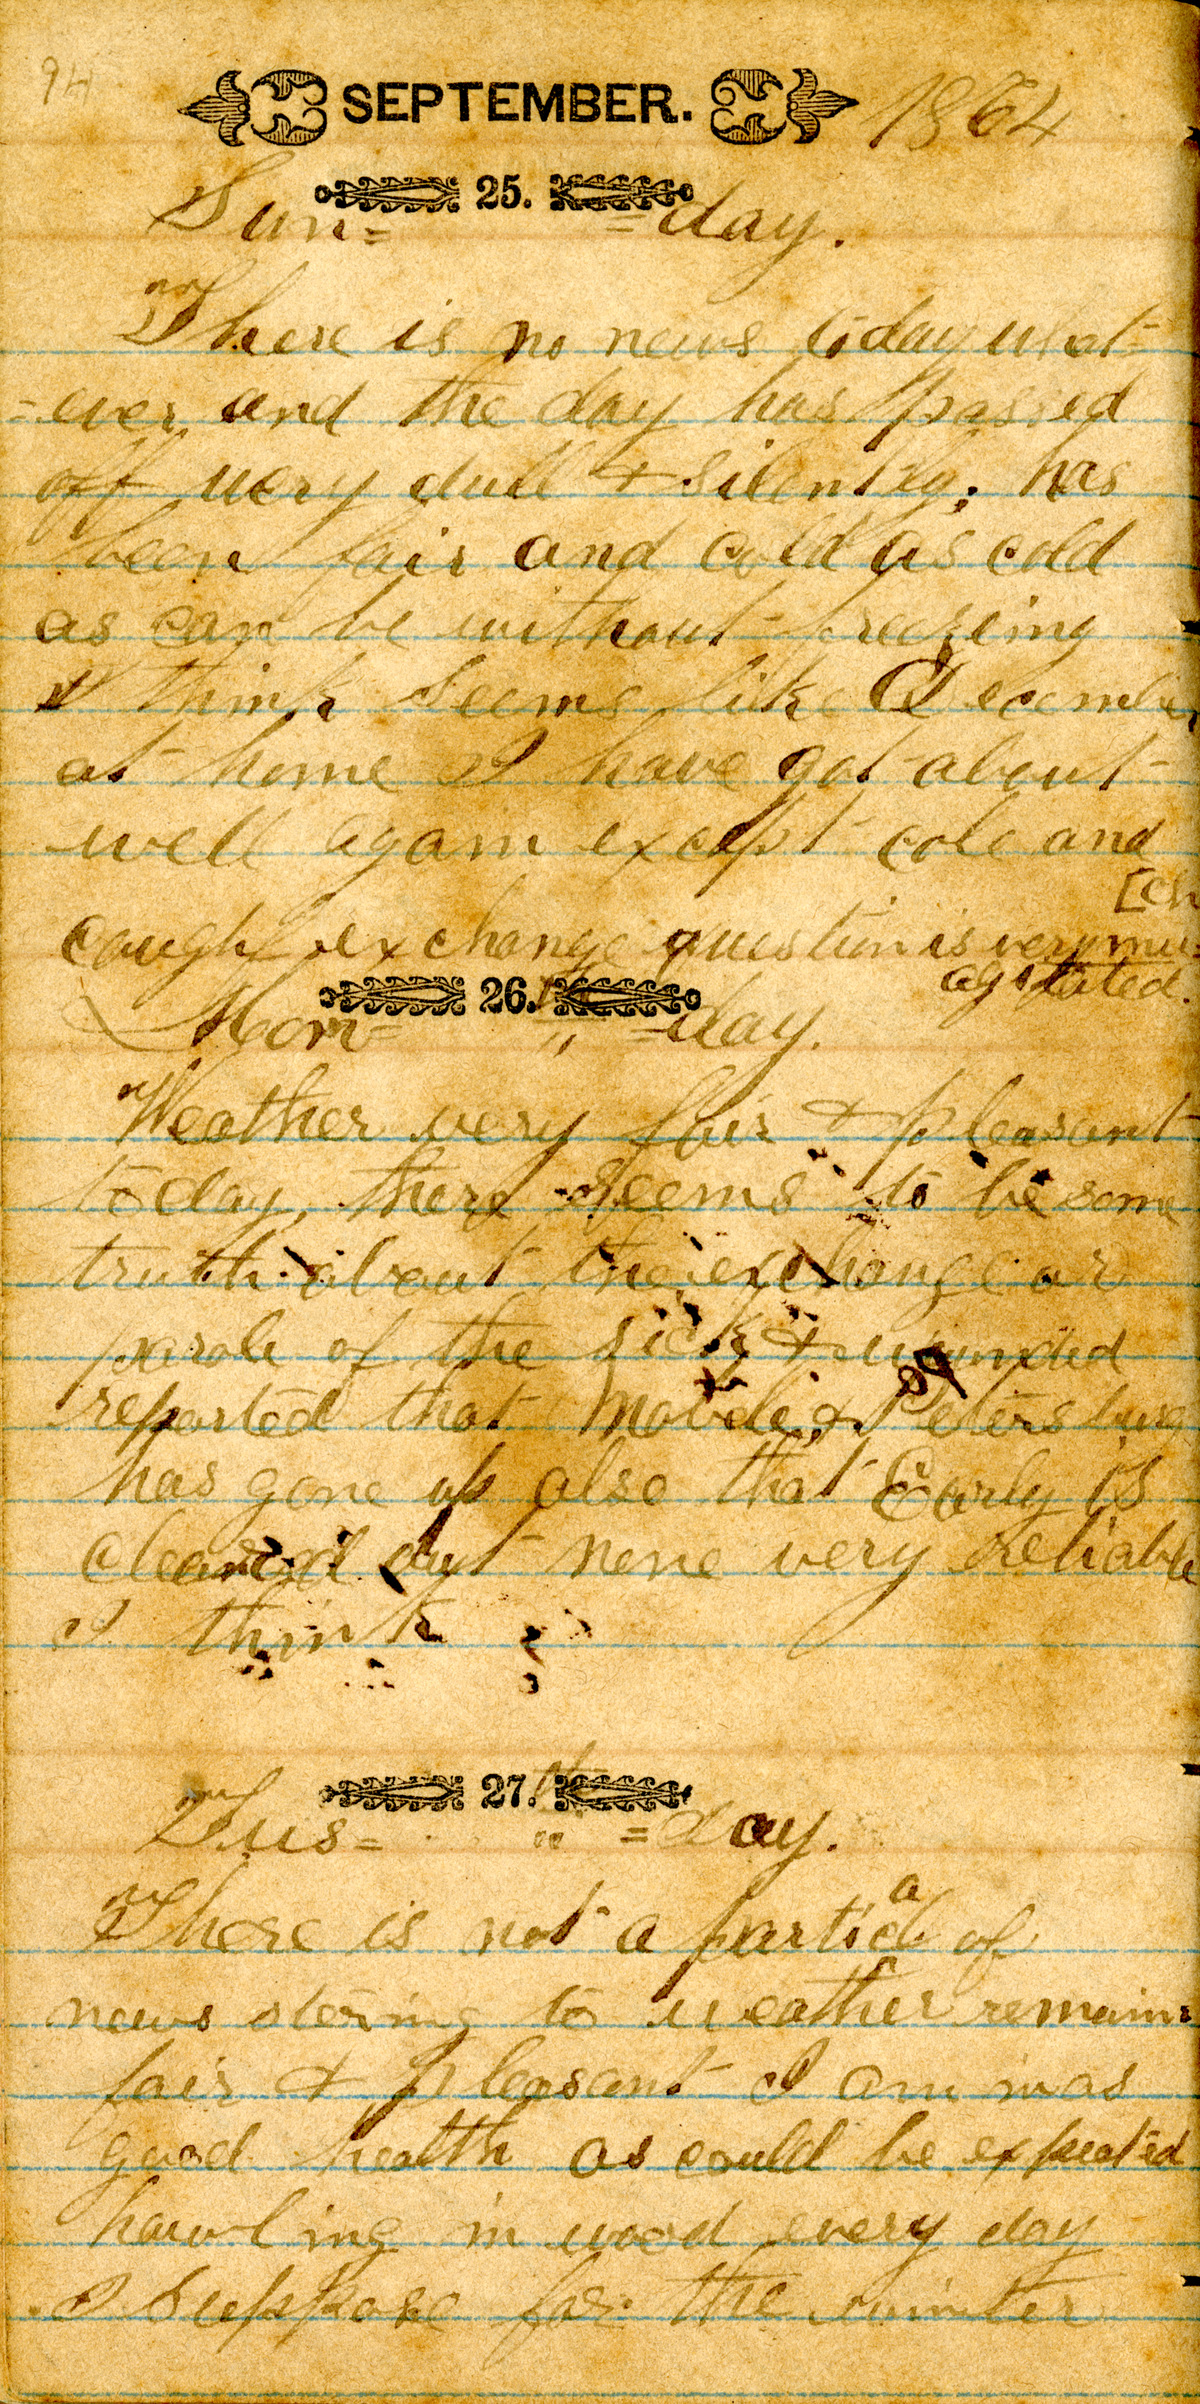 94
SEPTEMBER. 1864
25.
Sun= =day.
There is no news today what-
=ever and the day has passed
off very dull & silently; has
been fair and cold as cold
as can be without freezeing
I think seems like December
at home I have got about
well again except cole and
cough exchange question is very mu-
[ch
agitated.
26.th
Mon= " =day.
Weather very fair & pleasant
today, there seems to be some
truth about the exchange or
parole of the sick & wounded
reported that Mobile & Petersburg
has gone up also that Early is
cleaned out none very reliable
I think
27.th
Tus= " =day.
There is not a particale of
news stering to weather remains
fair & pleasant I am in as
good health as could be expected
hawling in wood every day
I suppose for the winter